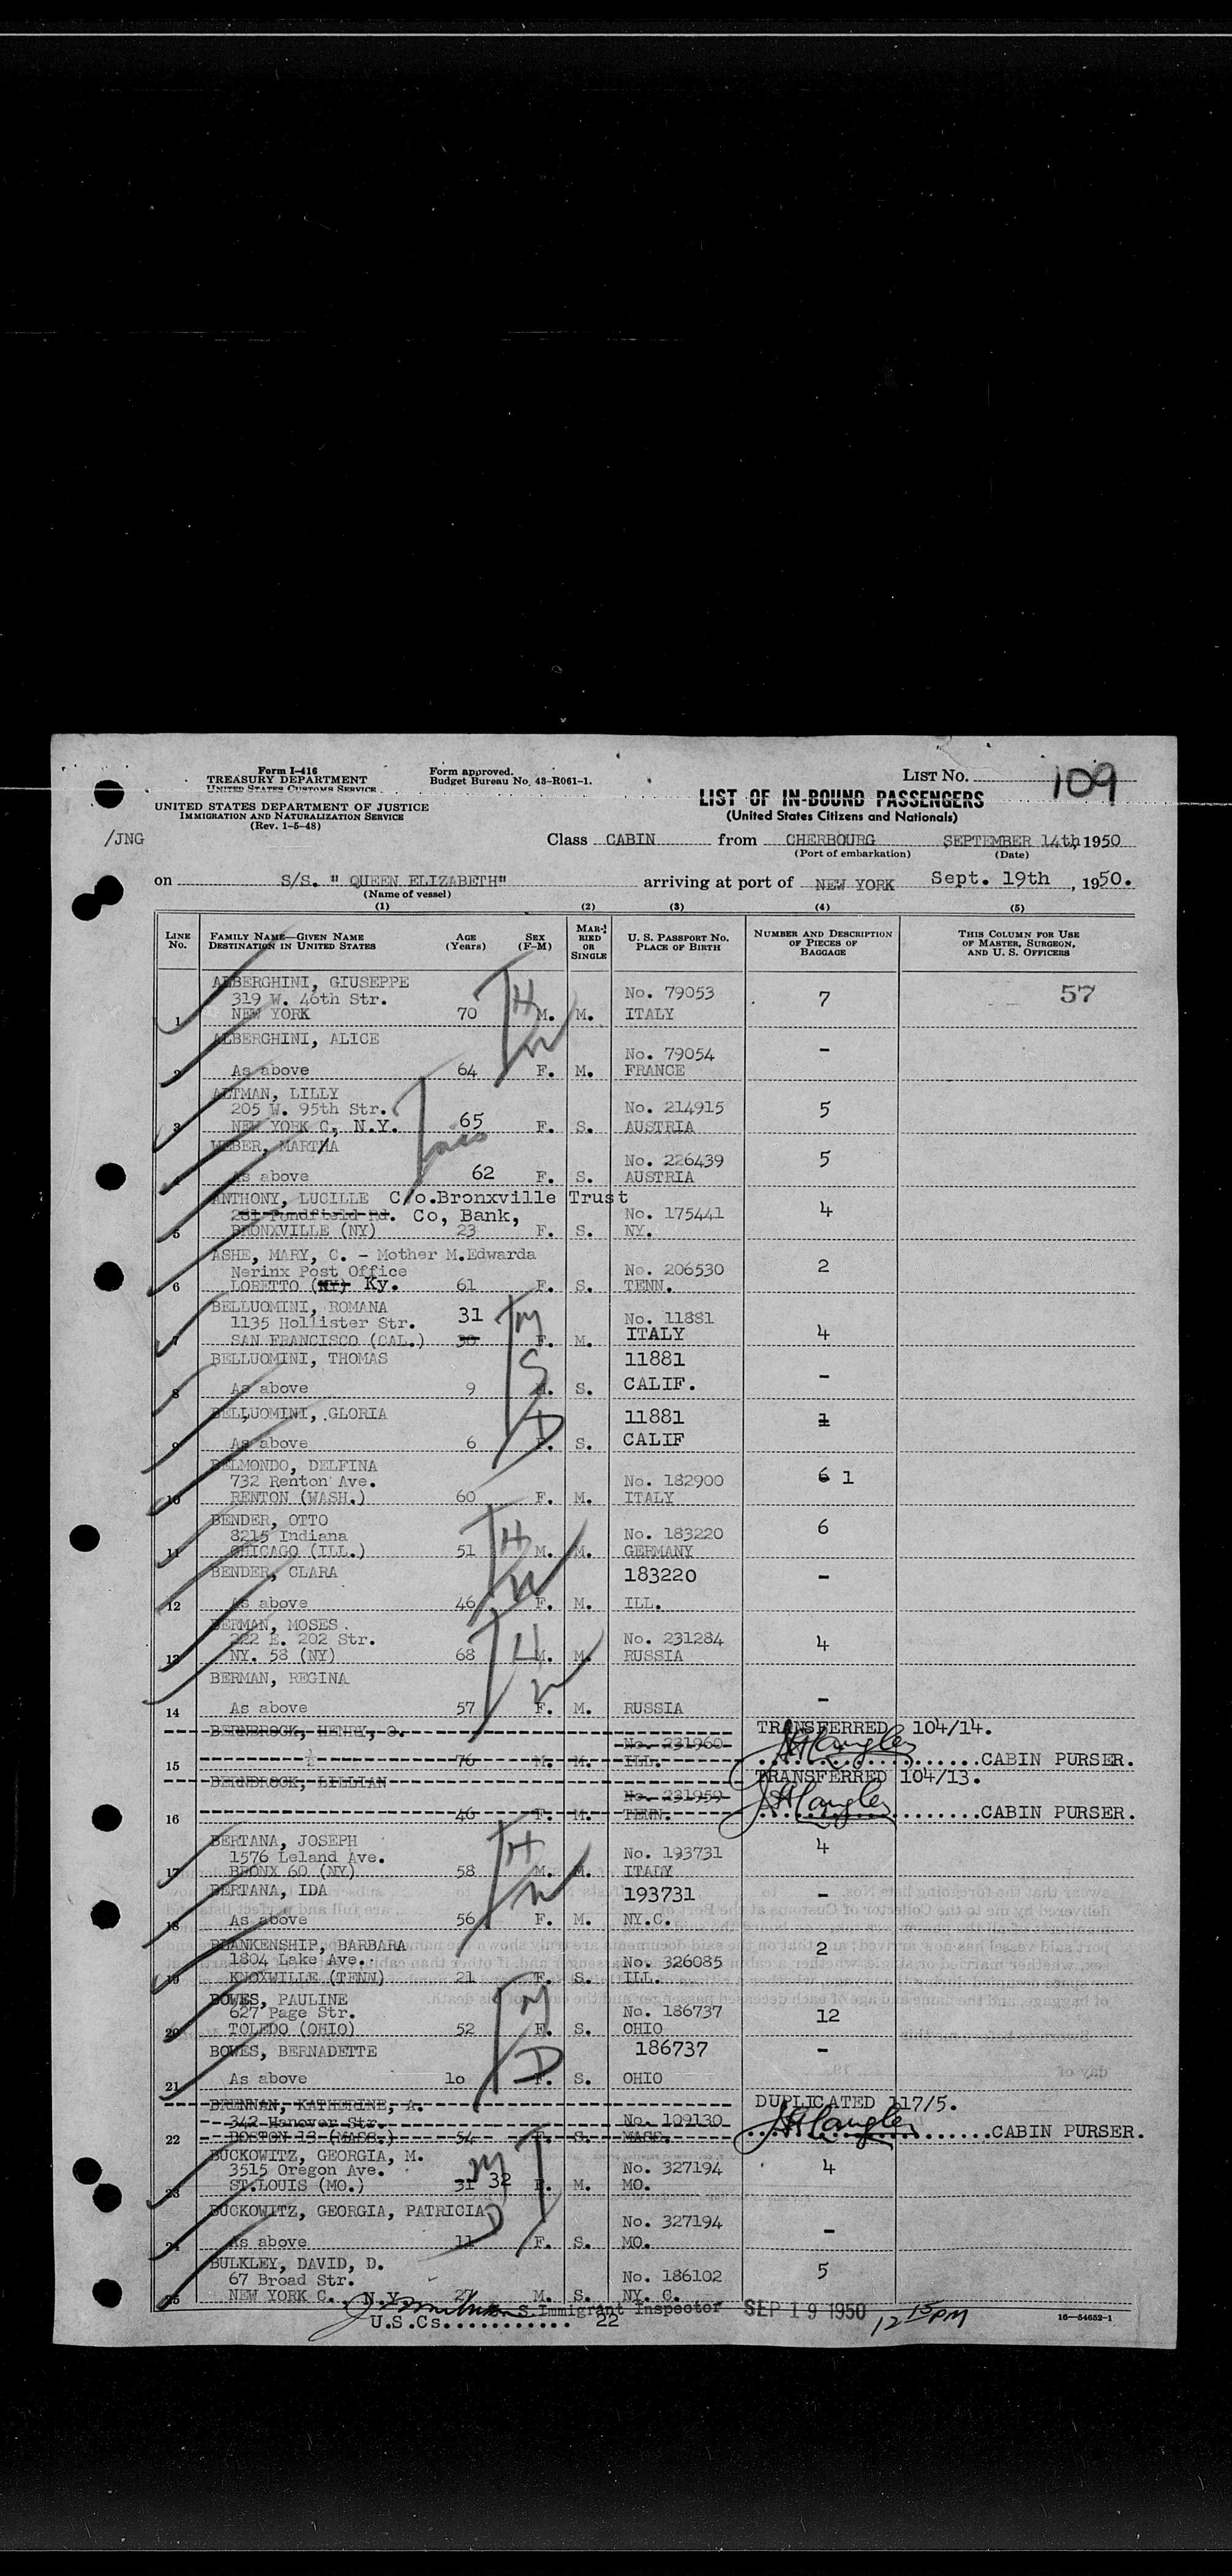 Form I-416
TREASURY DEPARTMENT
UNITED STATES CUSTOMS SERVICE
Form approved.
Budget Bureau No. 43-R061-1.
LIST NO. 109
UNITED STATES DEPARTMENT OF JUSTICE
IMMIGRATION AND NATURALIZATION SERVICE
(Rev. 1-5-48)
LIST OF IN-BOUND PASSENGERS
(United States Citizens and Nationals)
/JNG
Class CABIN from CHERBOURG SEPTEMBER 14th, 1950
(Port of embarkation) (Date)
on S/S. " QUEEN ELIZABETH" arriving at port of NEW YORK Sept. 19th , 1950.
(Name of vessel)
(1) (2) (3) (4) (5)
LINE NO. FAMILY NAME—GIVEN NAME DESTINATION IN UNITED STATES AGE (Years) SEX (F-M) MARRIED OR SINGLE U. S. PASSPORT NO. PLACE OF BIRTH NUMBER AND DESCRIPTION OF PIECES OF BAGGAGE THIS COLUMN FOR USE OF MASTER, SURGEON, AND U. S. OFFICERS
ALBERGHINI, GIUSEPPE
319 W. 46th Str. No. 79053 7 57
1 NEW YORK 70 M. M. ITALY
ALBERGHINI, ALICE
No. 79054 -
2 As above 64 F. M. FRANCE
ALTMAN, LILLY
205 W. 95th Str. No. 214915 5
3 NEW YORK C, N.Y. 65 F. S. AUSTRIA
WEBER, MARTHA
No. 226439 5
4 As above 62 F. S. AUSTRIA
ANTHONY, LUCILLE C/o.Bronxville Trust
281 Pondfield Rd. Co, Bank, No. 175441 4
5 BRONXVILLE (NY) 23 F. S. NY.
ASHE, MARY, C. - Mother M.Edwarda
Nerinx Post Office No. 206530 2
6 LORETTO (NY) Ky. 61 F. S. TENN.
BELLUOMINI, ROMANA 31
1135 Hollister Str. No. 11881
7 SAN FRANCISCO (CAL.) 30 F. M. ITALY 4
BELLUOMINI, THOMAS 11881
8 As above 9 M. S. CALIF. -
BELLUOMINI, GLORIA 11881 1
9 As above 6 F. S. CALIF
BELMONDO, DELFINA
732 Renton Ave. No. 182900 6 1
10 RENTON (WASH.) 60 F. M. ITALY
BENDER, OTTO
8215 Indiana No. 183220 6
11 CHICAGO (ILL.) 51 M. M. GERMANY
BENDER, CLARA 183220 -
12 As above 46 F. M. ILL.
BERMAN, MOSES
222 E. 202 Str. No. 231284 4
13 NY. 58 (NY) 68 M. M. RUSSIA
BERMAN, REGINA
14 As above 57 F. M. RUSSIA -
BERNBROCK, HENRY, O. No. 231960 TRANSFERRED 104/14.
15 76 M. M. ILL. CABIN PURSER.
BERNBROCK, LILLIAN No. 231959 TRANSFERRED 104/13.
16 46 F. M. TENN. CABIN PURSER.
BERTANA, JOSEPH
1576 Leland Ave. No. 193731 4
17 BRONX 60 (NY) 58 M. M. ITALY
BERTANA, IDA 193731 -
18 As above 56 F. M. NY.C.
BLANKENSHIP, BARBARA
1804 Lake Ave. No. 326085 2
19 KNOXWILLE (TENN) 21 F. S. ILL.
BOWES, PAULINE
627 Page Str. No. 186737 12
20 TOLEDO (OHIO) 52 F. S. OHIO
BOWES, BERNADETTE 186737 -
21 As above 10 F. S. OHIO
BRENNAN, KATHERINE, A. DUPLICATED 117/5.
342 Hanover Str. No. 109130
22 BOSTON 13 (MASS.) 54 F. S. MASS. CABIN PURSER.
BUCKOWITZ, GEORGIA, M.
3515 Oregon Ave. No. 327194 4
23 ST.LOUIS (MO.) 31 32 F. M. MO.
BUCKOWITZ, GEORGIA, PATRICIA
No. 327194 -
24 As above 11 F. S. MO.
BULKLEY, DAVID, D.
67 Broad Str. No. 186102 5
25 NEW YORK C., N.Y. 27 M. S. NY. C.
S.Immigrant Inspector SEP 19 1950 12 15 PM 16—54652-1
U.S.Cs........... 22